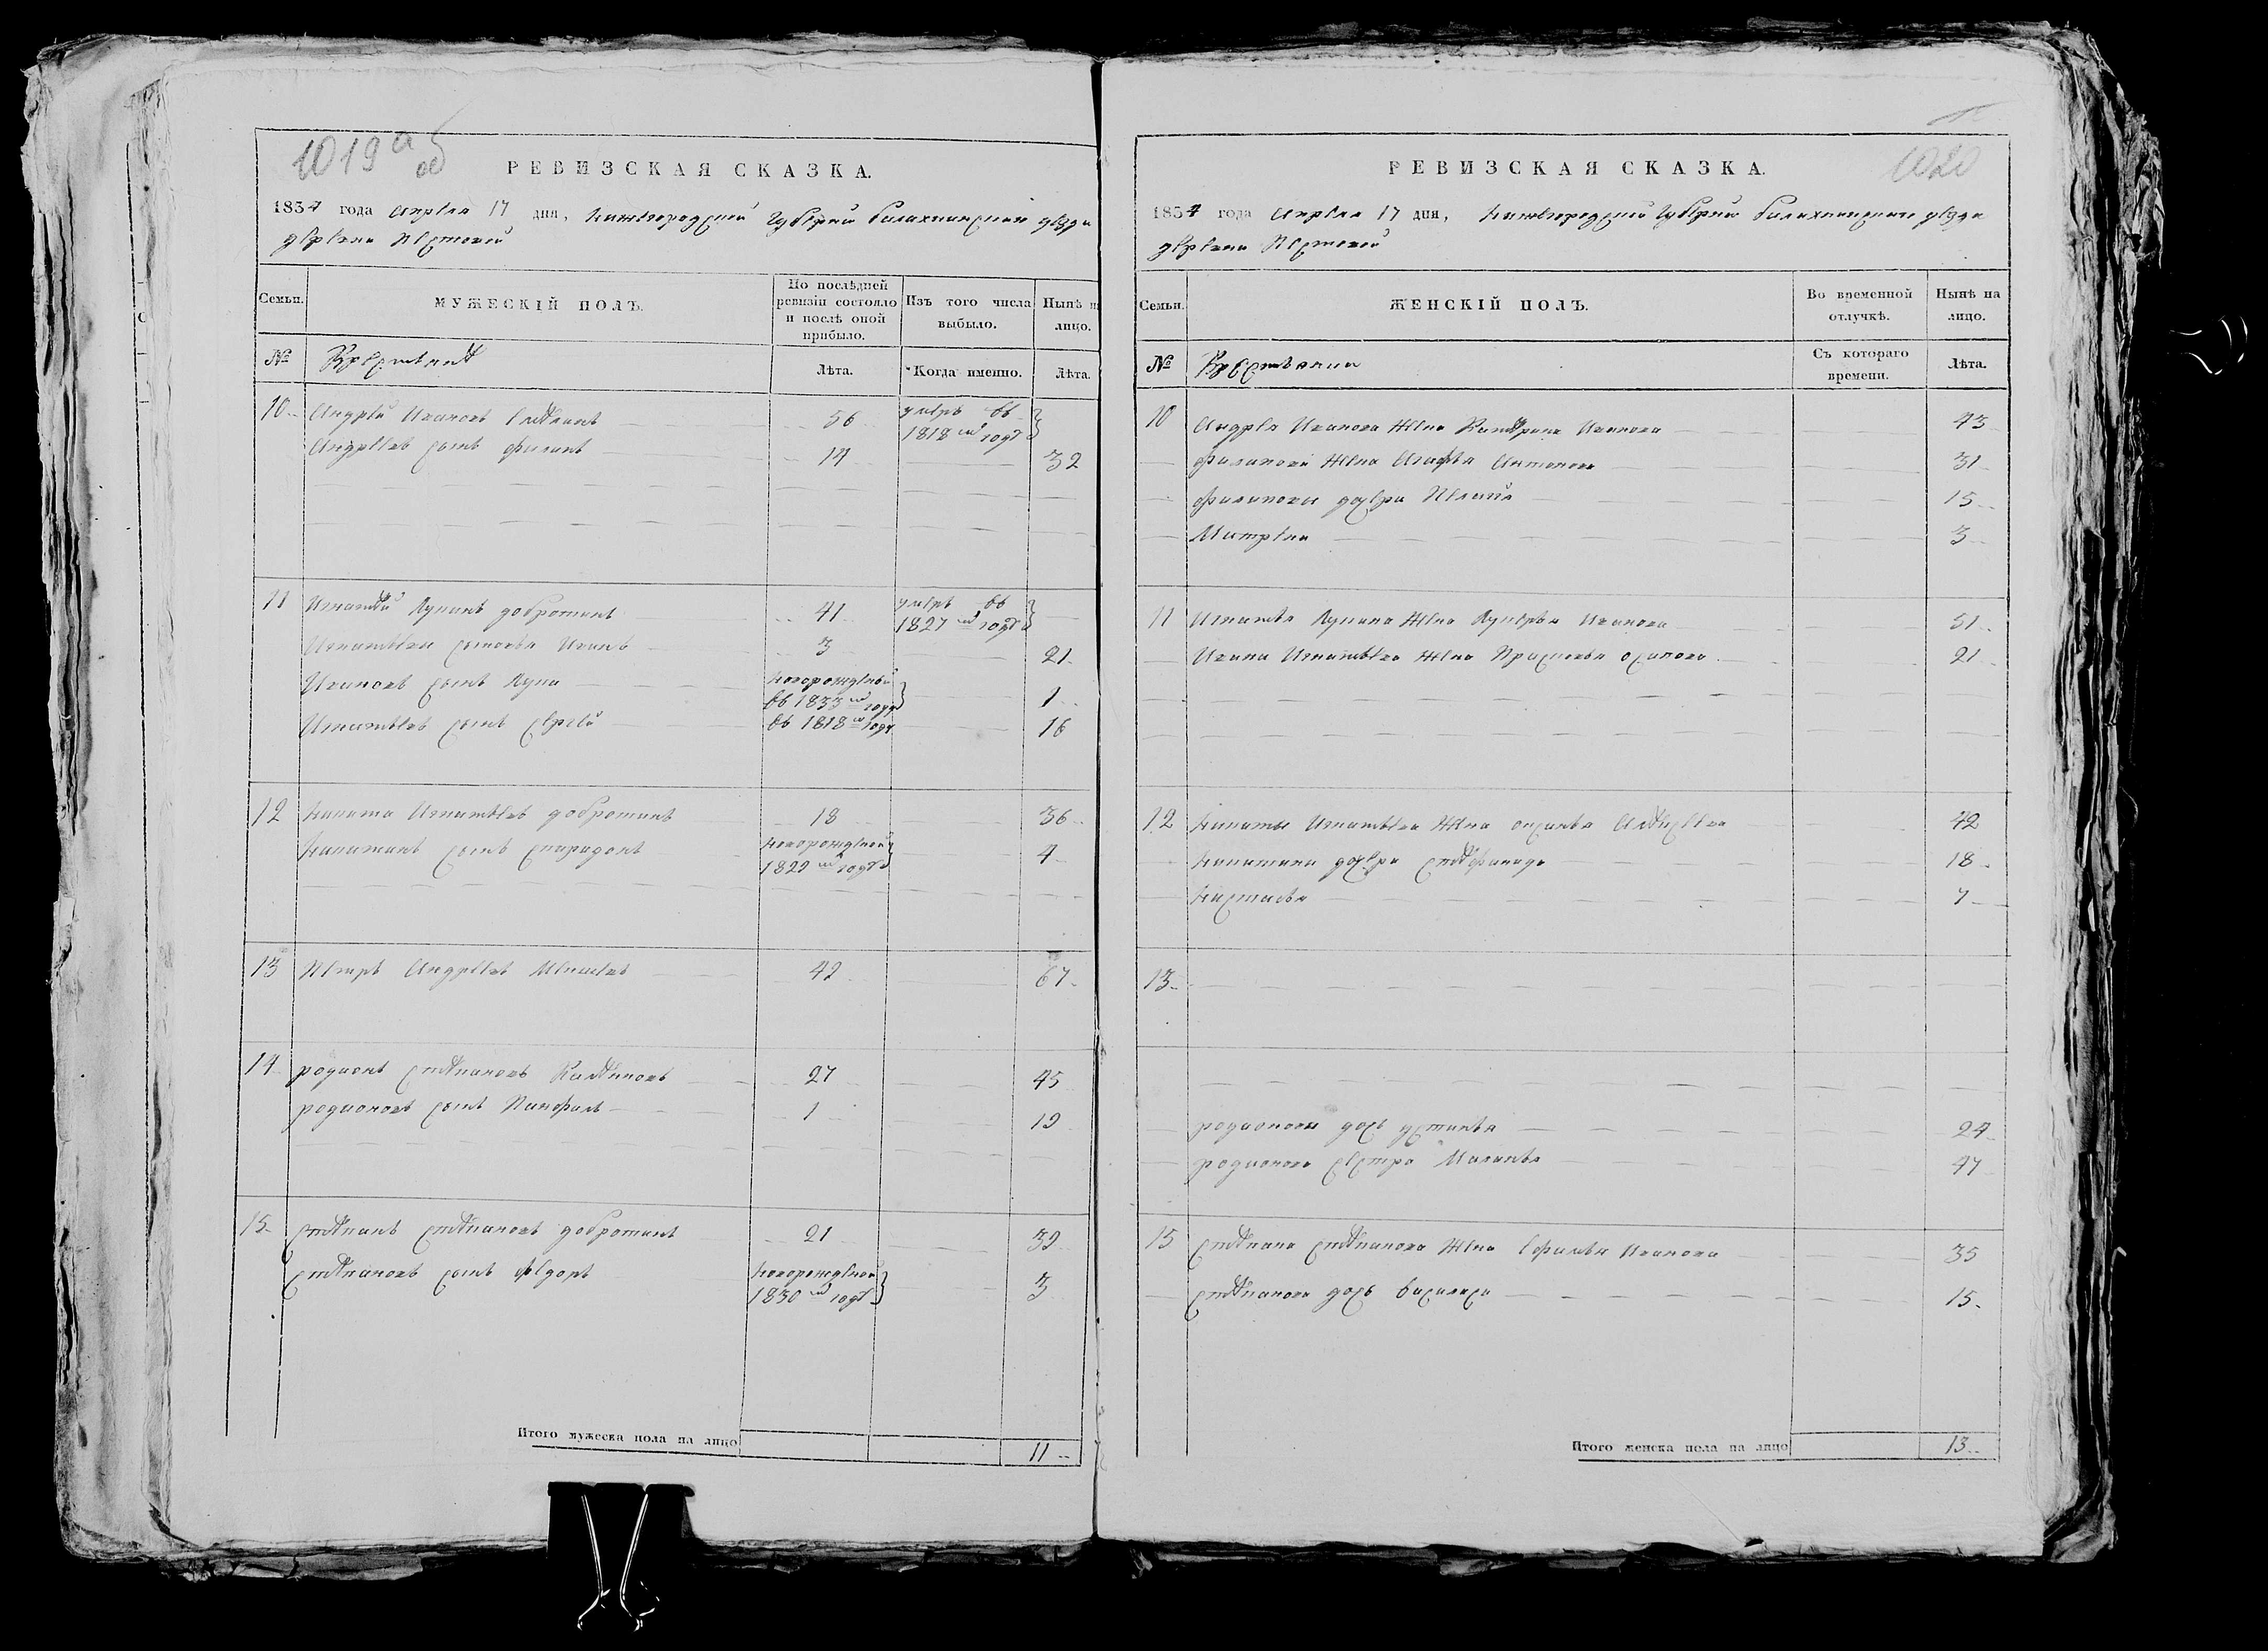 1019 а об
РЕВИЗСКАЯ СКАЗКА.
1834 года апреля 17 дня, Нижегородской Губернии балахнинскаго уезда
деревни Пестовой
Семьи.
МУЖЕСКІЙ ПОЛЪ.
По послѣдней ревизіи состояло и послѣ оной прибыло.
Изъ того числа выбыло.
Нынѣ на лицо.
№
Крестьяне
Лѣта.
Когда именно.
Лѣта.
10 Андрей Ивановъ 56 умеръ въ 1818м годѣ
Андреевъ сынъ филипъ 14 32
11 Игнатей Лупинъ добротинъ 41 умеръ въ 1827м годѣ
Игнатьевы сыновья Иванъ 3 21
Ивановъ сынъ Лупа новорожденный въ 1833м годѣ 1
Игнатьевъ сынъ Сергей въ 1818м годѣ 16
12 Никита Игнатьевъ добротинъ 18 36
Никитинъ сынъ Спиридонъ новорожденной 1829м годѣ 4
13 Петръ Андреевъ 49 67
14 родионъ Степановъ 27 45
родионовъ сынъ Панфилъ 1 19
15 Степанъ Степановъ добротинъ 21 39
Степановъ сынъ Федоръ новорожденной 1830м годѣ 3
Итого мужеска пола на лицо 11
1020
РЕВИЗСКАЯ СКАЗКА.
1834 года апреля 17 дня, Нижегородской Губернии балахнинскаго уезда
деревни Пестовой
Семьи.
ЖЕНСКІЙ ПОЛЪ.
Во временной отлучкѣ.
Нынѣ на лицо.
№
Крестьянки
Съ котораго времени.
Лѣта.
10 Андрея Иванова жена Катерина Иванова 43
филипова жена Агафья Антонова 31
филиповы дочери Пелагия 15
Матрена 3
11 Игнатья Лупина жена Лукерья Иванова 51
Ивана Игнатьева жена Прасковья осипова 21
12 Никиты Игнатьева жена оксинья Алексеева 42
Никитины дочери Степанида 18
Настасья 7
13
родионовы дочь устинья 24
родионова сестра Маланья 47
15 Степана Степанова жена Ефимья Иванова 35
Степанова дочь василиса 15
Итого женска пола на лицо 13